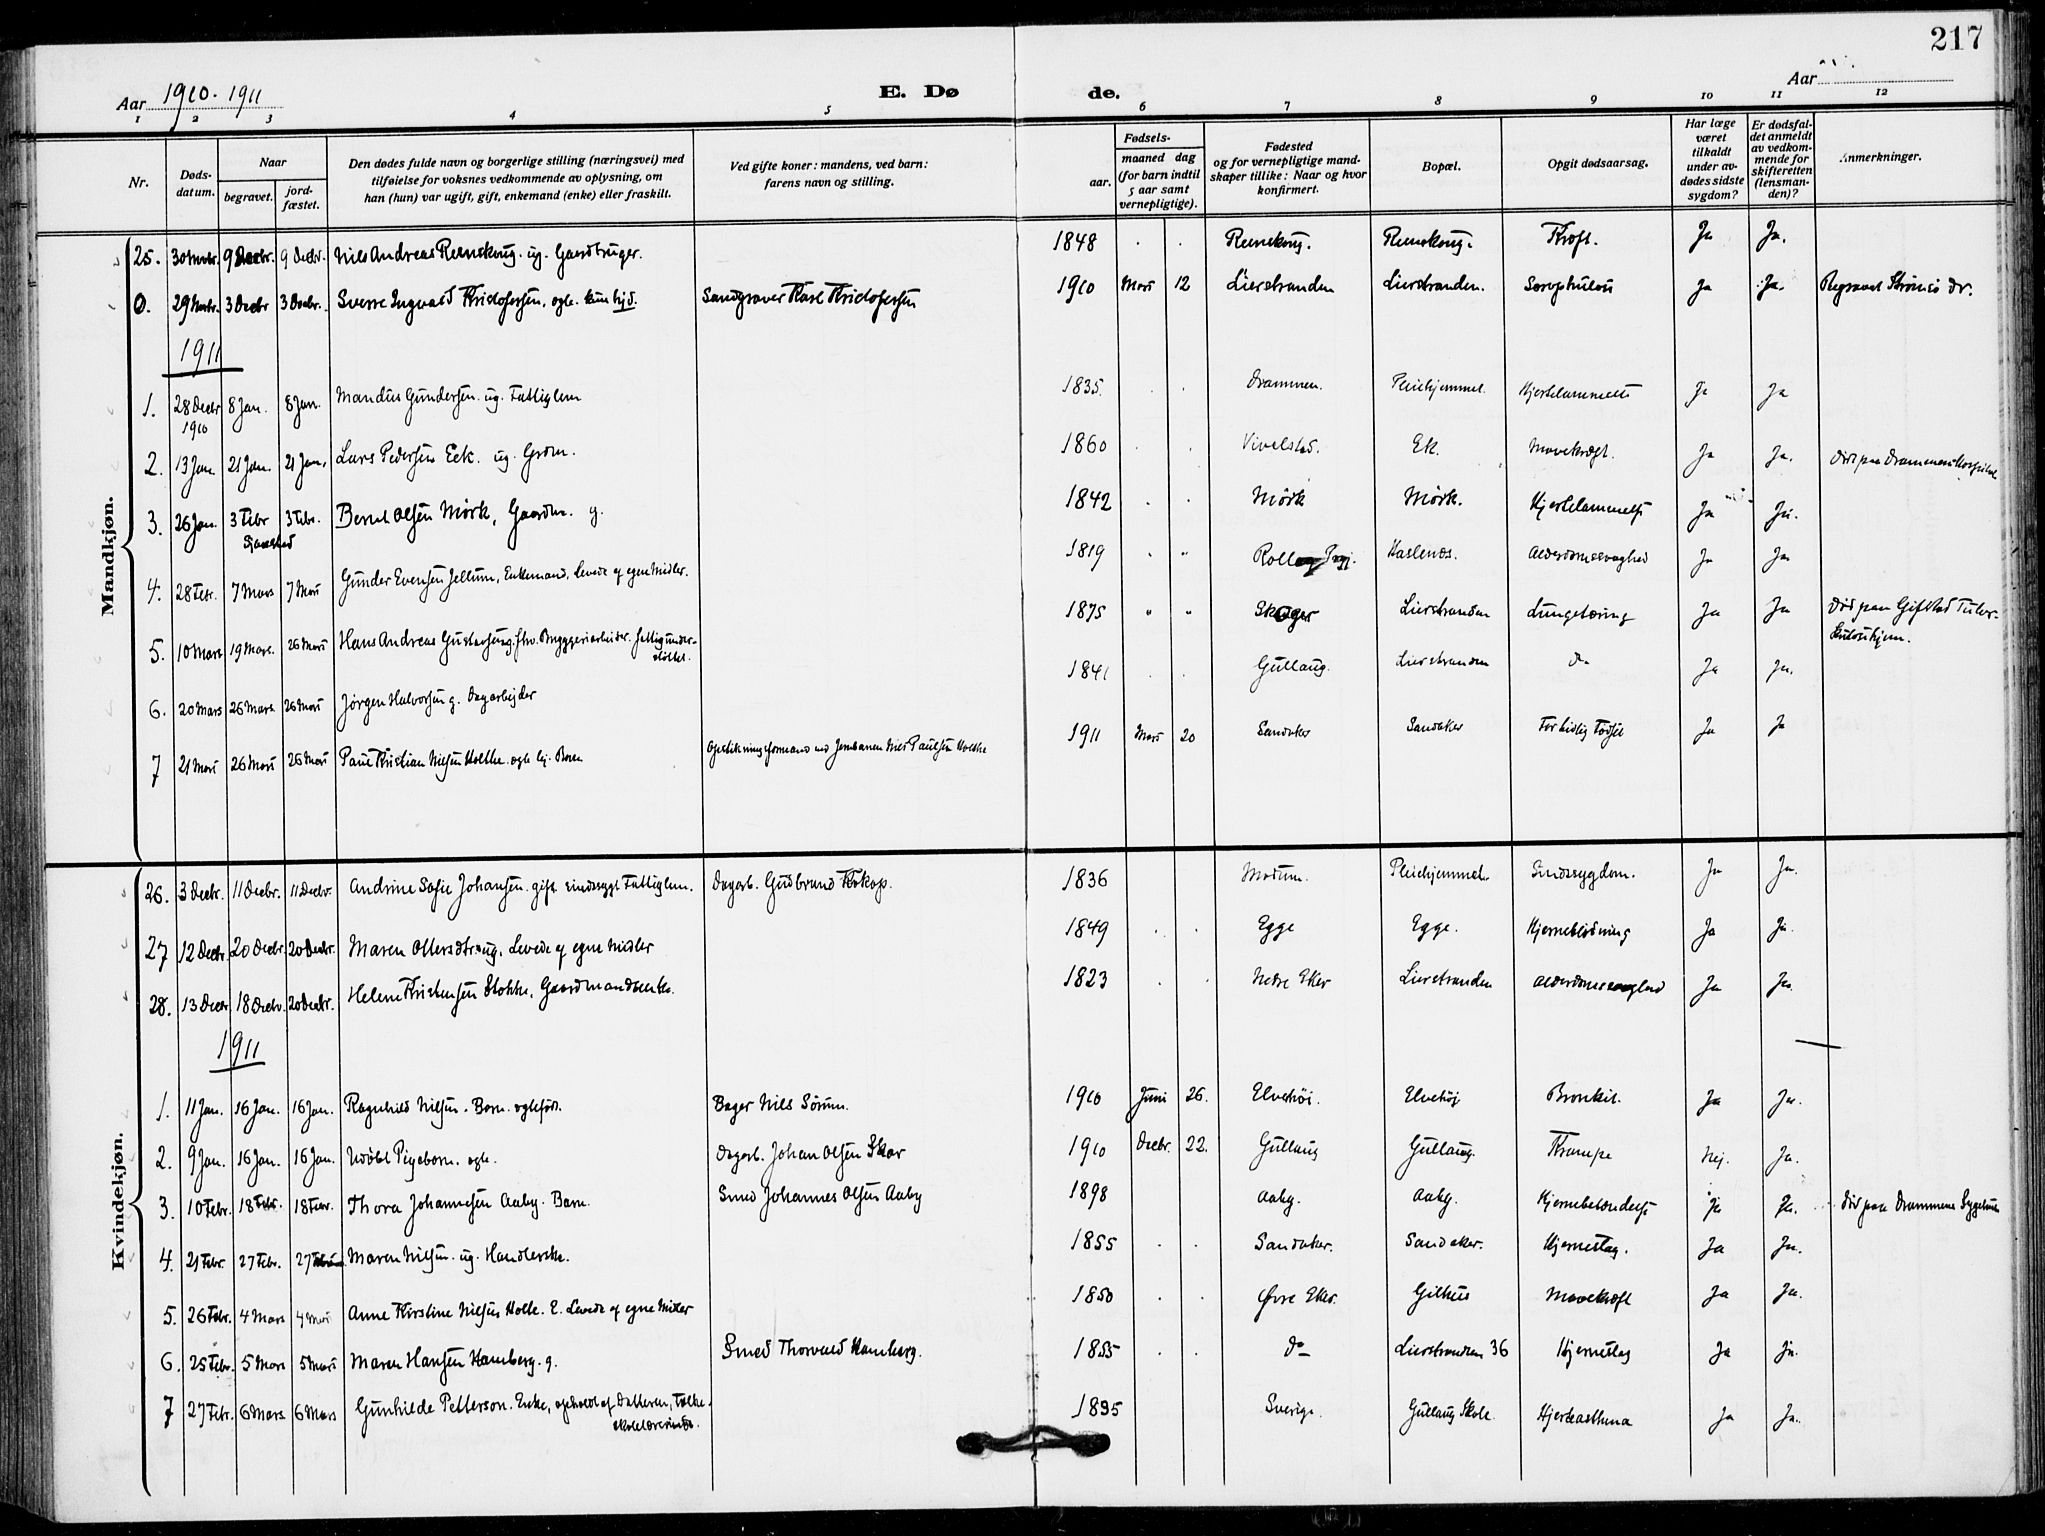 217
Aar 1910. 1911
E. Dø de.
Aar
1 2 3 4 5 6 7 8 9 10 11 12
Nr.
Døds-
datum.
Naar
begravet.
jord-
fæstet.
Den dødes fulde navn og borgerlige stilling (næringsvei) med
tilføielse for voksnes vedkommende av oplysning, om
han (hun) var ugift, gift, enkemand (enke) eller fraskilt.
Ved gifte koner: mandens, ved barn:
farens navn og stilling.
Fødsels-
aar.
maaned dag
(for barn indtil
5 aar samt
vernepligtige).
Fødested
og for vernepligtige mand-
skaper tillike: Naar og hvor
konfirmert.
Bopæl.
Opgit dødsaarsag.
Har læge
været
tilkaldt
under av-
dødes sidste
sygdom?
Er dødsfal-
det anmeldt
av vedkom-
mende for
skifteretten
(lensman-
den)?
Anmerkninger.
Mandkjøn.
25. 30 Novbr. 9 Decbr. 9 Decbr. Nils Andreas Reenskoug. ug. Gaardbruger. 1848 Reenskoug. Reenskoug. Kræft. Ja Ja.
0. 29 Novbr. 3 Decbr 3 Decbr. Sverre Ingvald Kristofersen, ogte. Sandgraver Karl Kristofersen 1910 Mars 12 Lierstranden Lierstranden. Ja Ja. Begravet Strømsø Dr.
1911
1. 28 Decbr 1910 8 Jan. 8 Jan. Mandus Gundersen. ug. Fattiglem 1835. Drammen. Pleiehjemmet. Hjertelammelse Ja Ja
2. 13 Jan. 21 Jan. 21 Jan. Lars Pedersen Eek. ug. Grdm. 1860 Vivelstad. Ek. Mavekræft. Ja Ja. Død paa Drammens Hospital
3. 26 Jan. 3 Febr 3 Febr. Bernt Olsen Mørk, Gaardm. g. 1842 Mørk Mørk. Hjertelammelse Ja Ja.
4. 28 Febr. 7 Mars 7 Mars Gunder Evensen Jellum, Enkemand, Levede af egne Midler. 1819 Rollag Haslenæs. Alderdomssvaghed Ja Ja
5. 10 Mars 19 Mars. 26 Mars Hans Andreas Gustavsen ug. fhv. Bryggeriarbeider. fattigunder-
støttet. 1875 Skoger Lierstranden Lungetæring Ja Ja Død paa Gifstad Tuber-
kulosehjem.
6. 20 Mars 26 Mars. 26 Mars Jørgen Halvorsen g. Dagarbeider 1841 Gullaug. Lierstranden do Ja Ja.
7 21 Mars 26 Mars 26 Mars Paul Kristian Nilsen Holthe. ogte lej. Barn Opstikningsformand ved Jernbanen Nils Paulsen Holthe 1911 Mars 20 Sandaker Sandaker For tidlig Fødsel Ja Ja
Kvindekjøn.
26. 3 Decbr. 11 Decbr. 11 Decbr. Andrine Sofie Johansen. gift. sindssygt Fattiglem. Dagarb. Gudbrand Kokop. 1836 Modum. Pleiehjemmet. Sindssygdom. Ja Ja.
27 12 Decbr. 20 Decbr. 20 Decbr. Maren Ottersdtr. ug. Levede af egne Midler 1849 Egge Egge. Hjerneblødning Ja Ja.
28. 13 Decbr 18 Decbr. 20 Decbr. Helene Kristensen Stokke, Gaardmandsenke. 1823 Nedre Eker Lierstranden Alderdomssvaghed Ja Ja.
1911
1. 11 Jan. 16 Jan. 16 Jan. Ragnhild Nilsen. Barn. ogtefød. Bager Nils Sørum. 1910 Juni 26. Elvehøi. Elvehøj Bronkit. Ja Ja.
2. 9 Jan. 16 Jan. 16 Jan. Udøbt Pigebarn. ogte. Dagarb. Johan Olsen Skar 1910 Decbr. 22. Gullaug Gullaug. Krampe Nej. Ja.
3. 10 Febr. 18 Febr. 18 Febr. Thora Johannesen Aaby. Barn. Smed Johannes Olsen Aaby 1898 Aaby. Aaby. Hjernebetændelse Ja Ja. Død paa Drammens Sygehus
4. 21 Febr. 27 Febr. 27 Febr. Maren Nilsen. ug. Handlerske. 1855 Sandaker. Sandaker. Hjerneslag. Ja Ja.
5. 26 Febr. 4 Mars 4 Mars Anne Kirstine Nilsen Holte. E. Levede af egne Midler 1850 Øvre Eker. Gilhus Mavekræft Ja Ja.
6. 25 Febr. 5 Mars 5 Mars Maren Hansen Hamberg. g. Smed Thorvald Hamberg. 1855 do Lierstranden 36 Hjerneslag Ja Ja.
7 27 Febr. 6 Mars 6 Mars Gunhilde Petterson. Enke, opholdt af Datteren, Folke-
skolelærerinde. 1835 Sverige. Gullaug Skole. Hjerteasthma Ja Ja.